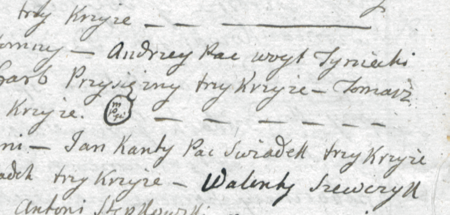 trzy Krzyże — — ———
— Andrzey Pac woyt Tyniecki
Przysiężny trzy Krzyże — Tomasz
Krzyże. — — — — — —
— Jan Kanty Pac Swiadek trzy Krzyże
trzy Krzyże — Walenty Szewczyk
Antoni